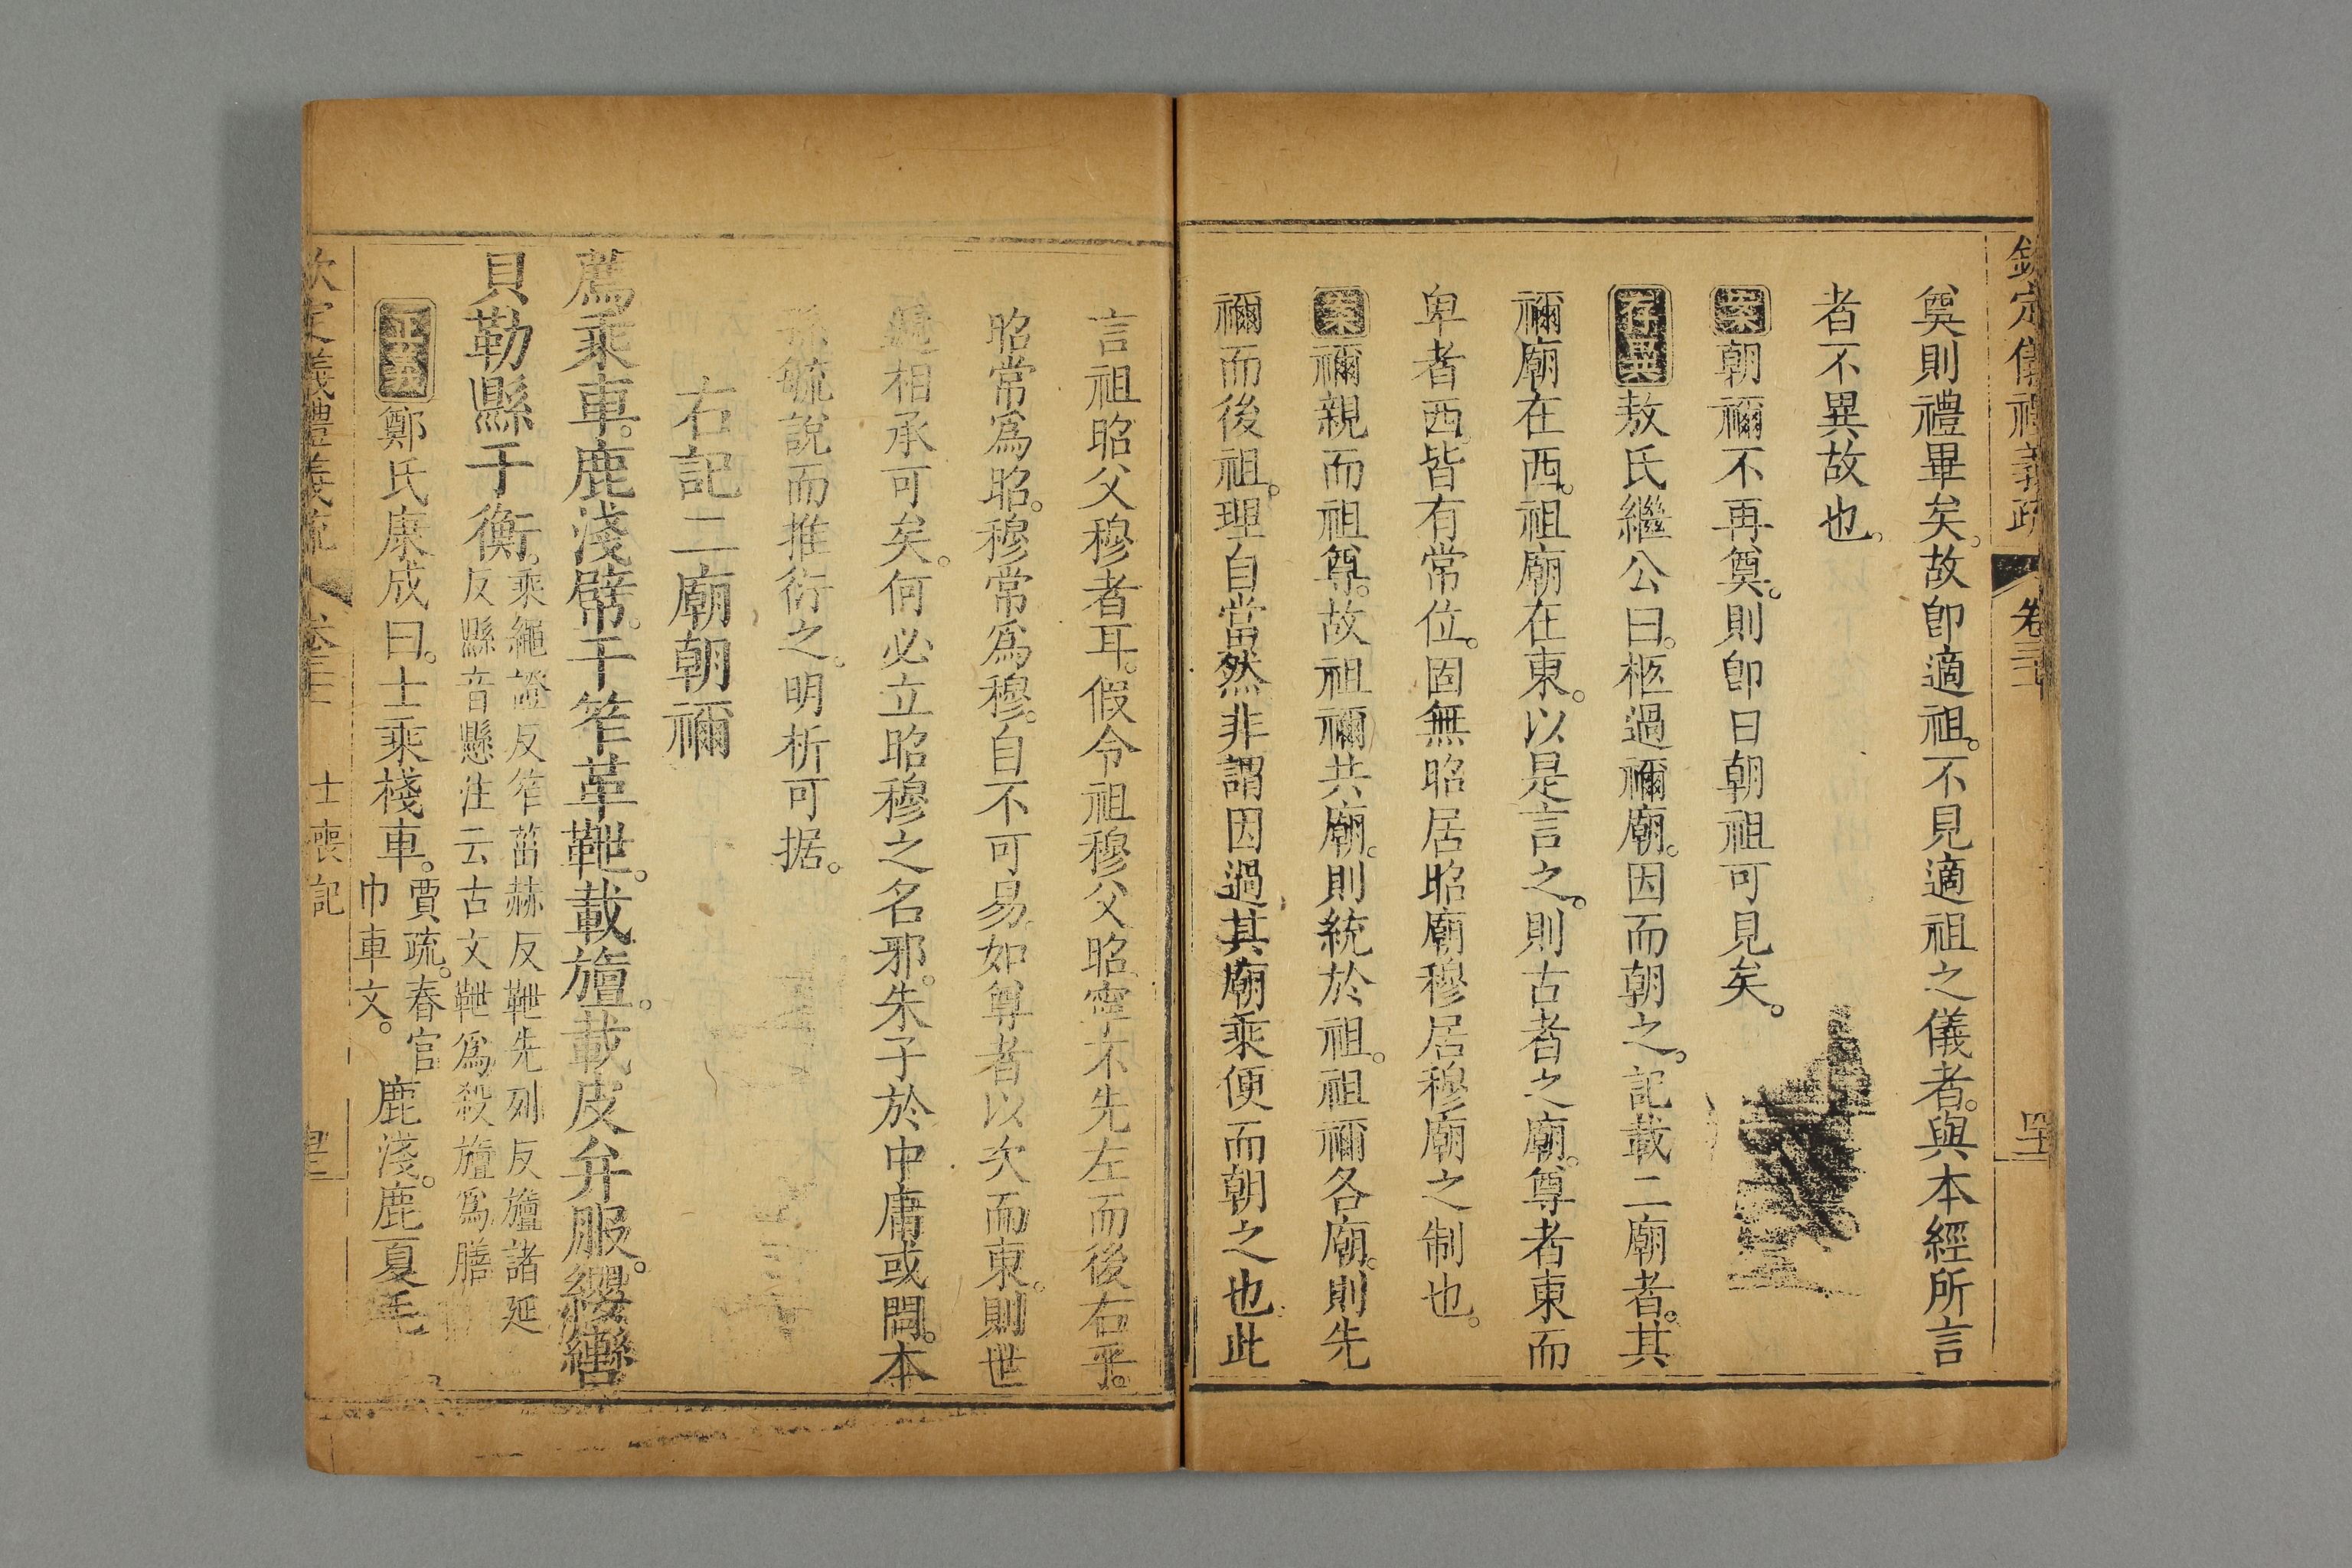 欽定儀禮義疏 卷三十 四十
奠則禮畢矣。故卽適祖。不見適祖之儀者。與本經所言
者不異故也。
案朝禰不再奠。則卽日朝祖可見矣。
存異敖氏繼公曰。柩過禰廟。因而朝之。記載二廟者。其
禰廟在西。祖廟在東。以是言之。則古者之廟。尊者東而
卑者西。皆有常位。固無昭居昭廟穆居穆廟之制也。
案禰親而祖尊。故祖禰共廟。則統於祖。祖禰各廟。則先
禰而後祖。理自當然非謂因過其廟乘便而朝之也此
言祖昭父穆者耳。假令祖穆父昭寧不先左而後右乎。
昭常爲昭。穆常爲穆。自不可易。如尊者以次而東。則世
相承可矣。何必立昭穆之名邪。朱子於中庸或問。本
孫毓說而推衍之。明析可据。
右記二廟朝禰
薦乘車。鹿淺幦。干笮革靾。載旜。載皮弁服。纓轡
貝勒縣于衡。
乘繩證反笮菑赫反靾先列反旜諸延
反縣音懸注云古文靾爲殺旜爲膳
正義鄭氏康成曰。士乘棧車。
賈疏。春官
巾車文。
鹿淺。鹿夏毛
欽定儀禮義疏 卷三十 士喪記